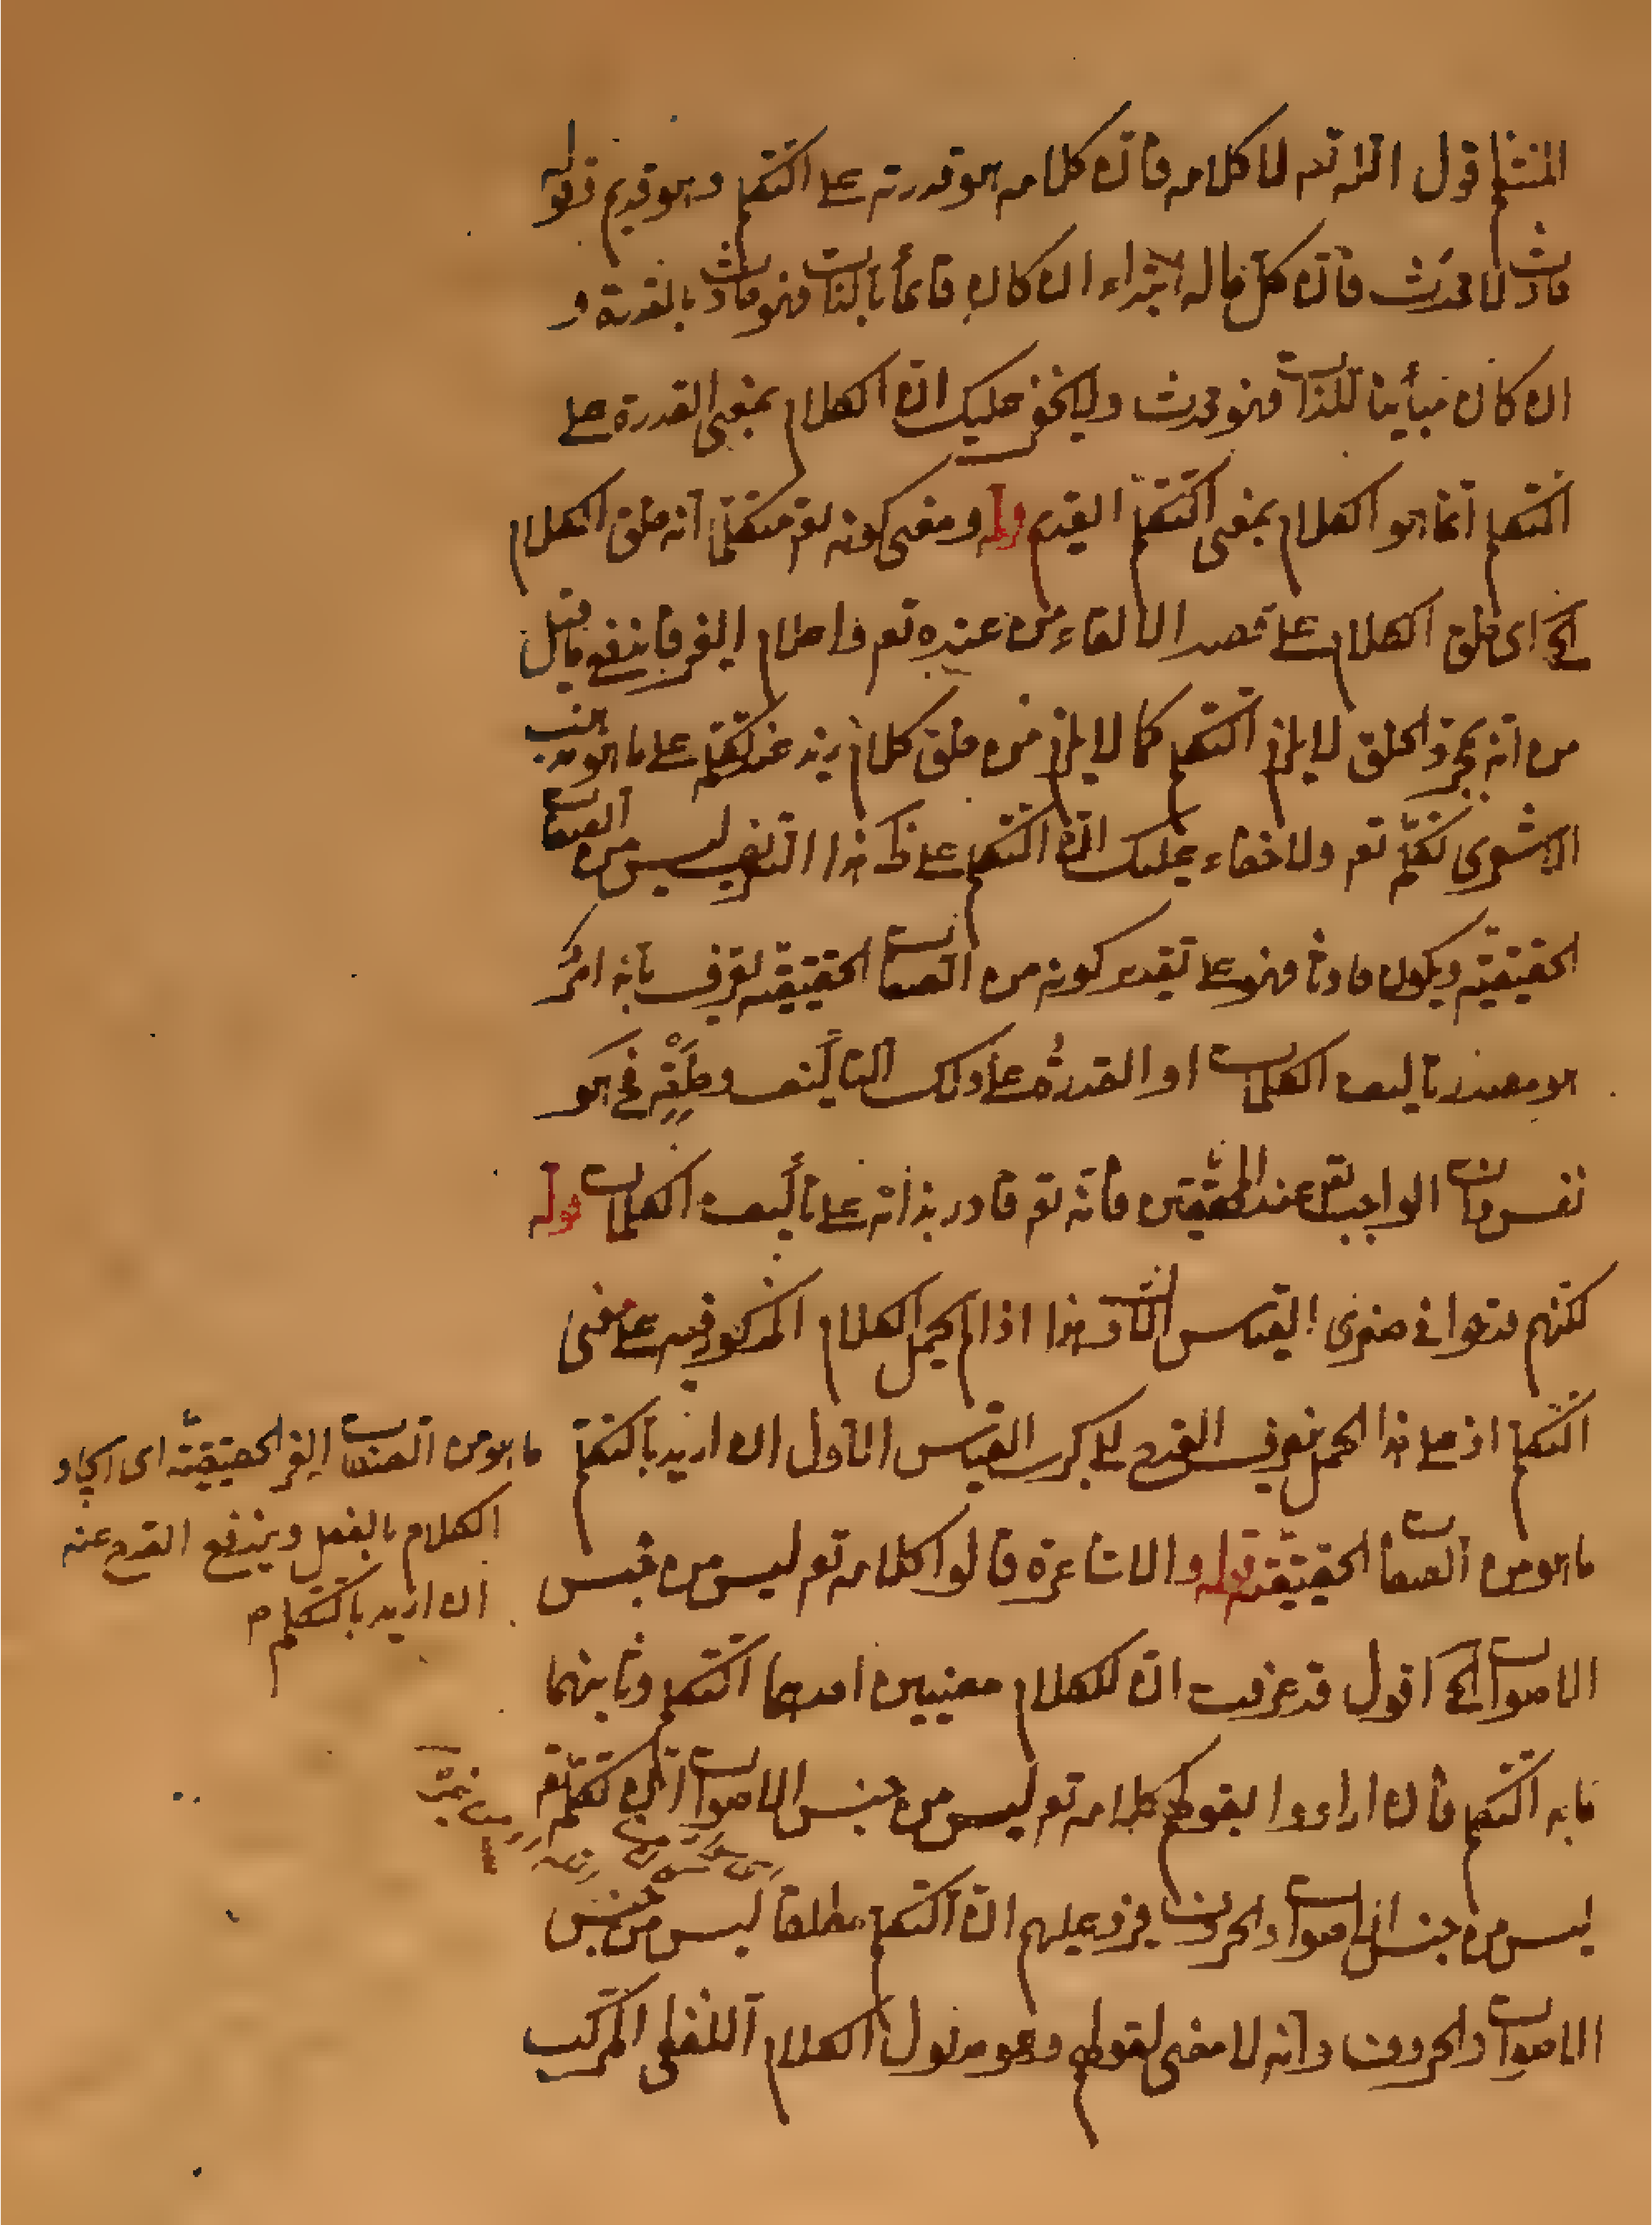 المنتظم قول الله تعـ لا كلامه فان كلامه هو قدرته على التكلم وهو قديم قوله
حادث لا محدث فان كل ما له ابتداء ان كان قائماً بالذات فهو حادث بالقدرة و
ان كان مبايناً للذات فهو محدث ولا يخفى عليك ان الكلام بمعنى القدرة على
التكلم انما هو الكلام بمعنى التكلم القديم قوله ومعنى كونه تعـ متكلماً انه خلق الكلام
الخ اى خلق الكلام على قصد الالقاء من عنده تعـ واعلام الغير فاندفع ما قيل
من انه بمجرد الخلق لا يلزم التكلم كما لا يلزم من خلق كلام زيد عند تكلمه على ما هو مذهب
الاشعرى تكلم تعـ ولا خفاء عليك ان التكلم على هذا التعريف ليس من الصفات
الحقيقية ويكون حادثاً فهو على تقدير كونه من الصفات الحقيقية تعرف بانه امر
هو مصدر تاليف الكلمات او القدرة على ذلك التأليف وخلقه فح هو
نفس ذات الواجب تعـ عند المحققين فانه تعـ قادر بذاته على تأليف الكلمات قوله
لكنهم قدحوا فى صغرى القياس الثانى هذا اذا لم يحمل الكلام المذكور فيه على معنى
التكلم اذ على هذا الحمل يعرف القدح الى كبرى القياس الاول ان اريد بالتكلم
ما هو من الصفات الحقيقية قوله والاشاعرة قالوا كلامه تعـ ليس من جنس
الاصوات الخ اقول قد عرفت ان للكلام معنيين احدهما التكلم وثانيهما
ما به التكلم فان ارادوا بقولهم كلامه تعـ ليس من جنس الاصوات ان تكلمه تعـ
ليس من جنس الاصوات والحروف فيرد عليهم ان التكلم مطلقاً ليس من جنس
الاصوات والحروف وانه لا معنى لقولهم وهو مدلول الكلام اللفظى المركب
ما هو من الصفات الغير الحقيقية اى ايجاد
الكلام بالفعل ويندفع القدح عنه
ان اريد بالتكلم